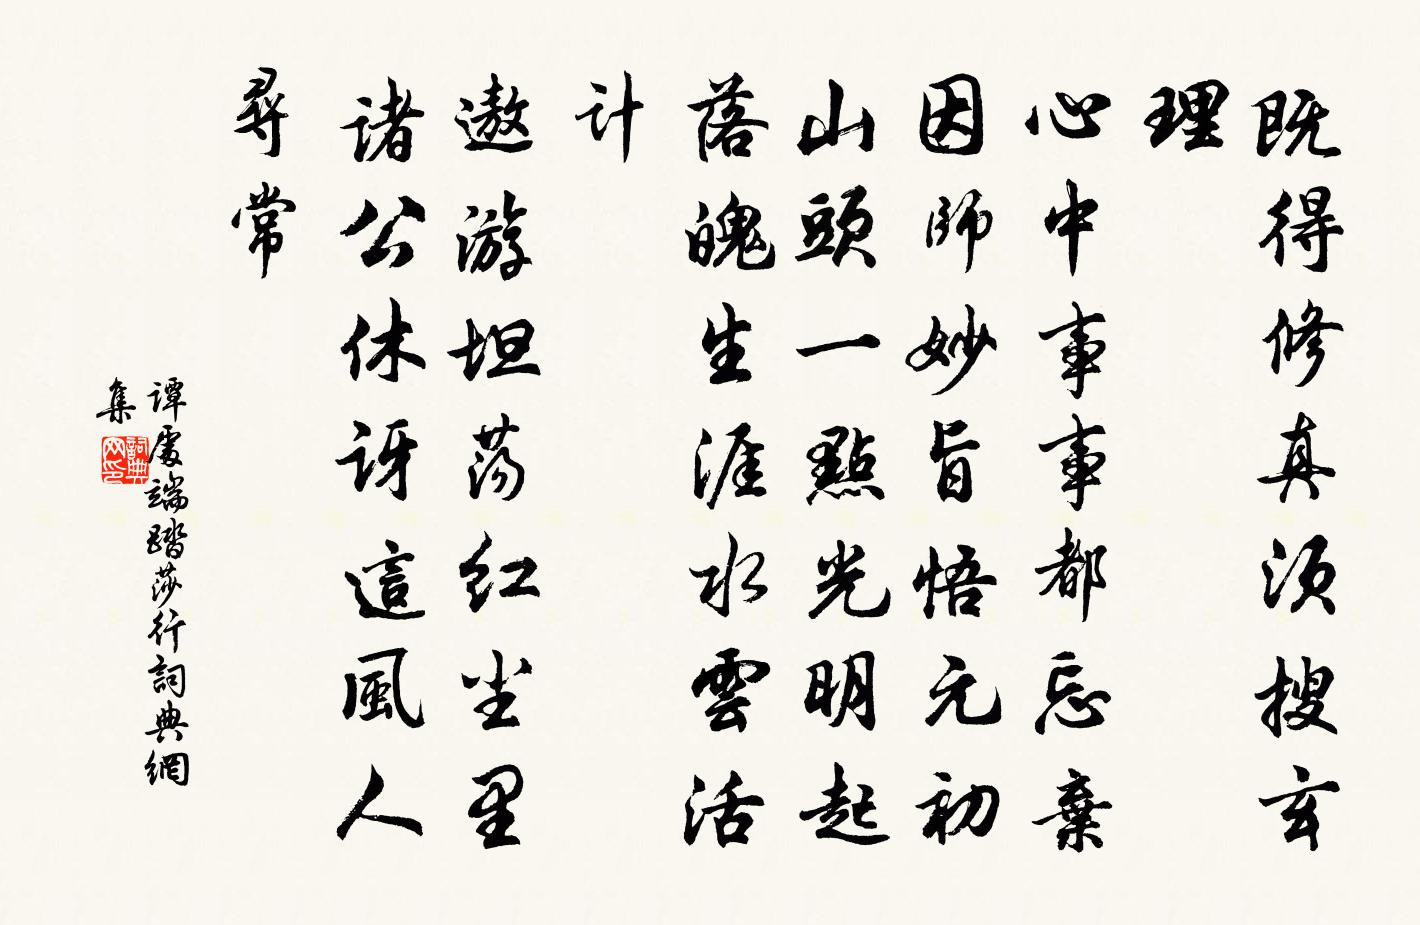 既得修真须搜玄
理
心中事事都忘棄
因師妙旨悟元初
山頭一點光明起
落魄生涯水雲活
计
遨游坦荡红尘里
诸公休讶這風人
尋常
譚處端踏莎行詞典網
集
詞典
网印